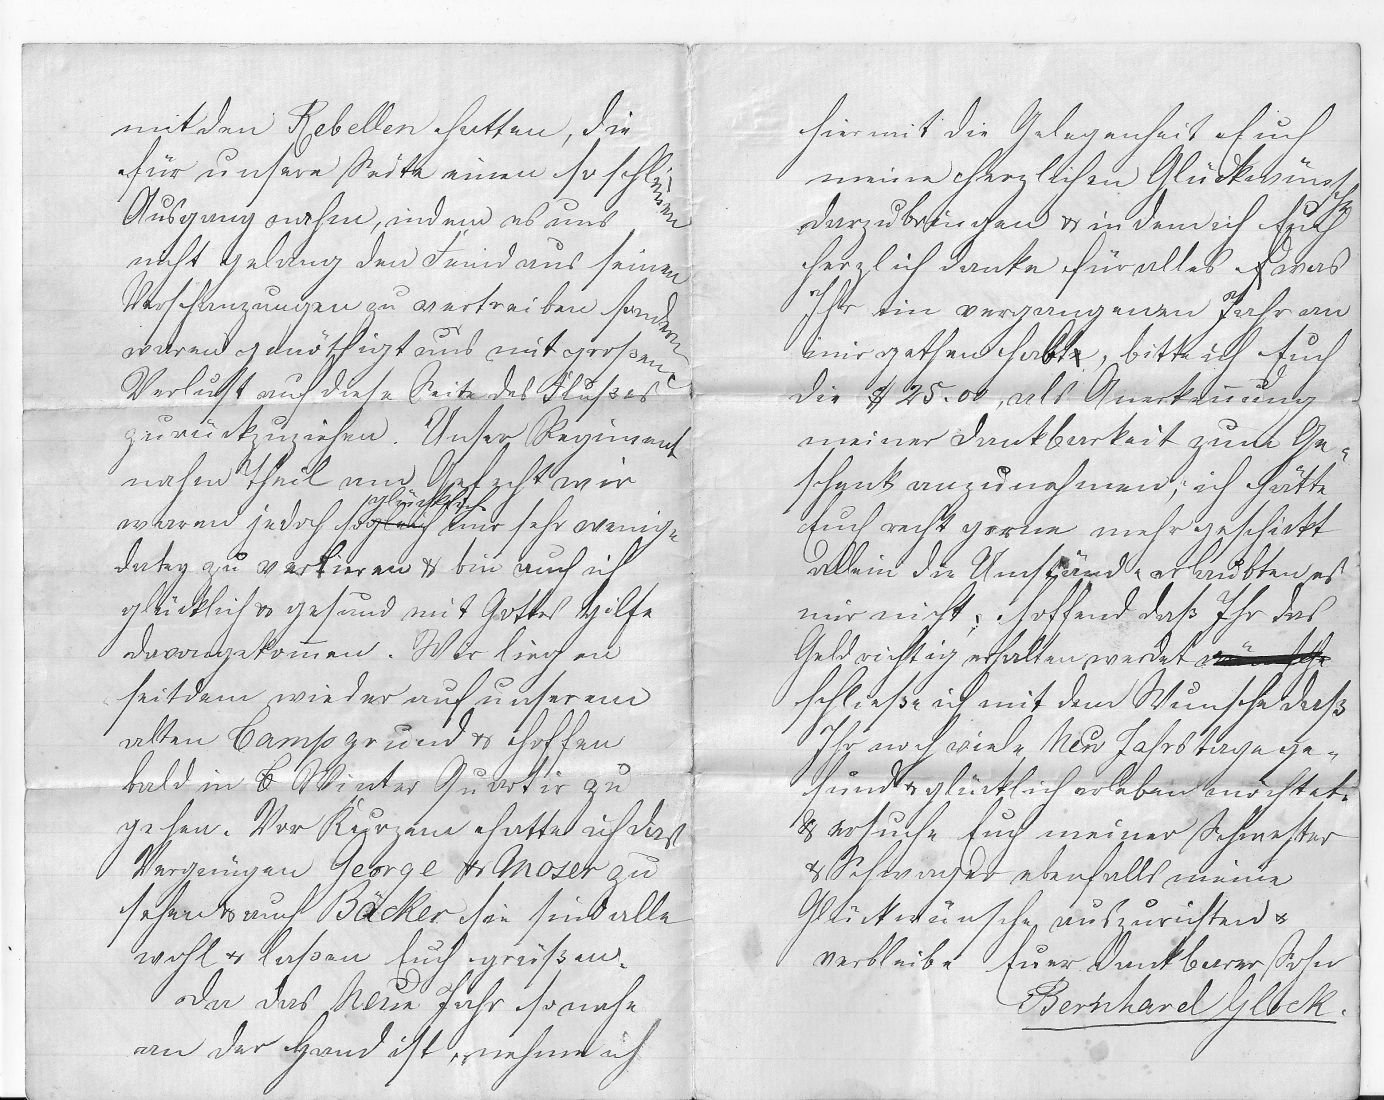 mit den Rebellen hatten, die
für unsere Seite einen so schlimmen
Ausgang nahm, indem es uns
nicht gelang den Feind aus seinen
Verschanzungen zu vertreiben sondern
waren genöthigt uns mit großen
Verlust auf diese Seite des Flußes
zurückzuziehen. Unser Regiment
nahm Theil am Gefecht wir
waren jedoch so glücklich nur sehr wenige
dabey zu verlieren & bin auch ich
glücklich & gesund mit Gottes Hilfe
davongekommen. Wir liegen
seitdem wieder auf unserem
alten Campgrund & hoffen
bald in Winter Quartir zu
gehen. Vor Kurzem hatte ich das
Vergnügen George & Moser zu
sehen & auch Bäcker sie sind alle
wohl & laßen Euch grüßen.
Da das Neue Jahr so nahe
an der Hand ist, nehme ich
hiermit die Gelegenheit Euch
meine herzlichen Glückwünsche
darzubringen & indem ich Euch
herzlich danke für alles was
Ihr im vergangenen Jahr an
mir gethan habt, bitte ich Euch
die $ 25.00, als Anerkennung
meiner Dankbarkeit zum Ge-
schenk anzunehmen; ich hätte
Euch recht gerne mehr geschickt
allein die Umstände erlaubten es
mir nicht; hoffend daß Ihr das
Geld richtig erhalten werdet
schließe ich mit dem Wunsche daß
Ihr noch viele Neu Jahrstage ge-
sund & glücklich erleben möchtet.
& ersuche Euch meiner Schwester
& Schwager ebenfalls meine
Glückwünsche auszurichten &
verbleibe Euer Dankbarer Sohn
Bernhard Glock.